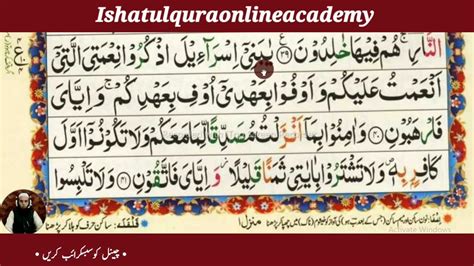 Ishatulquraonlineacademy
النَّارِ ۚ هُمْ فِيْهَا خٰلِدُوْنَ ﴿۳۹﴾ يٰبَنِيْٓ اِسْرَآءِيْلَ اذْكُرُوْا نِعْمَتِيَ الَّتِيْٓ
اَنْعَمْتُ عَلَيْكُمْ وَ اَوْفُوْا بِعَهْدِيْٓ اُوْفِ بِعَهْدِكُمْ ۚ وَ اِيَّايَ
فَارْهَبُوْنِ ﴿۴۰﴾ وَ اٰمِنُوْا بِمَآ اَنْزَلْتُ مُصَدِّقًا لِّمَا مَعَكُمْ وَلَا تَكُوْنُوْٓا اَوَّلَ
كَافِرٍۭ بِهٖ ۪ وَلَا تَشْتَرُوْا بِاٰيٰتِيْ ثَمَنًا قَلِيْلًا ؗ وَّ اِيَّايَ فَاتَّقُوْنِ ﴿۴۱﴾ وَلَا تَلْبِسُوا
Activate Windows
منزل ۱
قلقلہ: ساکن حرف کو ہلا کر پڑھنا
• چینل کو سبسکرائب کریں •